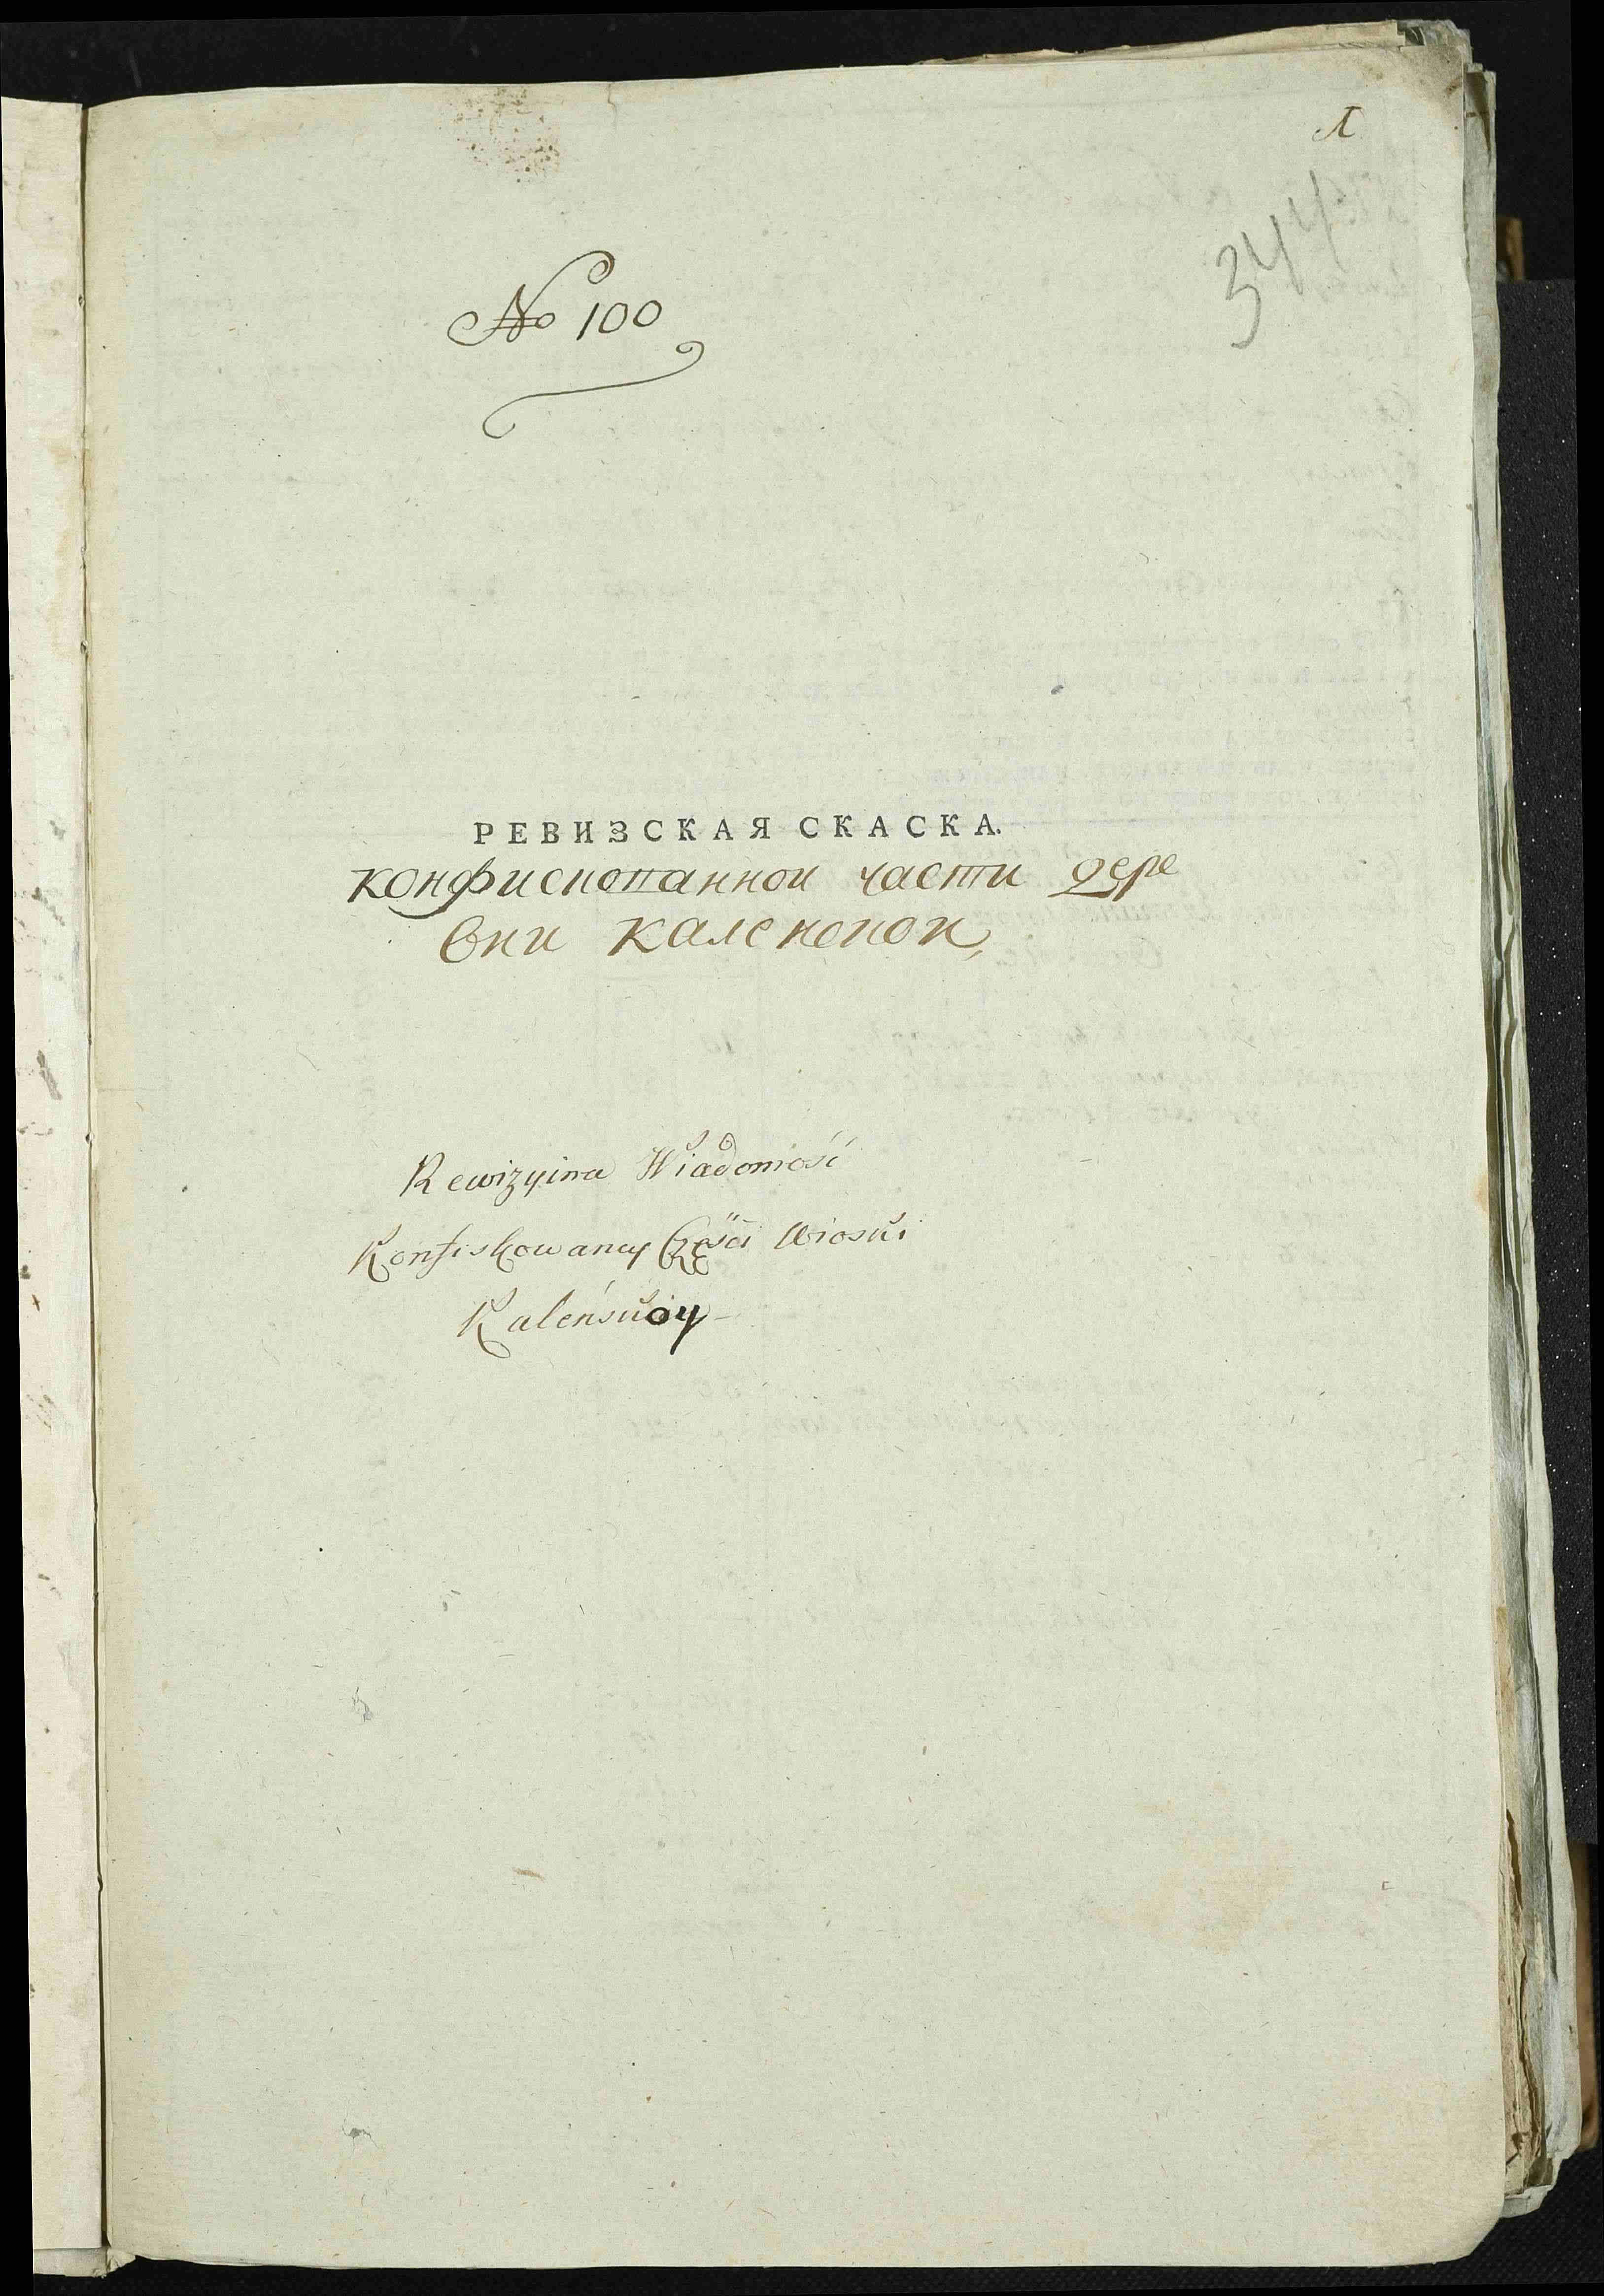 1
344
№ 100
РЕВИЗСКАЯ СКАСКА.
конфискованнои части дере
вни каленскои,
Rewizyina Wiadomość
Konfiskowaney Części Wioski
Kaleńskiey